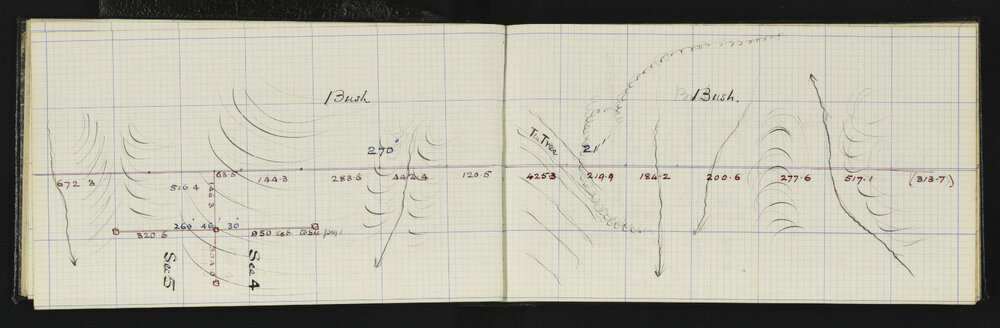 Bush
270°
672.3
516.4
63.5
144.3
283.6
442.4
120.5
146.3
320.6
269° 46' 30"
304.0
Sec 5
Sec 4
Bush.
Tea Tree
21'
425.3
219.9
184.2
200.6
277.6
517.1
(313.7)